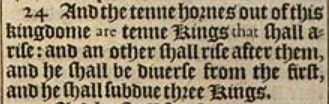 24 And the tenne hornes out of this
kingdome are tenne Kings that shall a-
rise: and an other shall rise after them,
and he shall be diuerse from the first,
and he shall subdue three Kings.